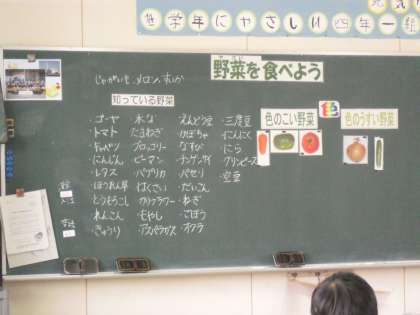 他学年にやさしい四年一組
野菜を食べよう
じゃがいも メロン すいか
知っている野菜
色
色のこい野菜
色のうすい野菜
・ゴーヤ
・トマト
・キャベツ
・にんじん
・レタス
・ほうれん草
・とうもろこし
・れんこん
・きゅうり
・水な
・たまねぎ
・ブロッコリー
・ピーマン
・パプリカ
・はくさい
・カリフラワー
・もやし
・アスパラガス
・えんどう豆
・かぼちゃ
・なすび
・チンゲンサイ
・パセリ
・だいこん
・ねぎ
・ごぼう
・オクラ
・三度豆
・にんにく
・にら
・グリンピース
・空豆